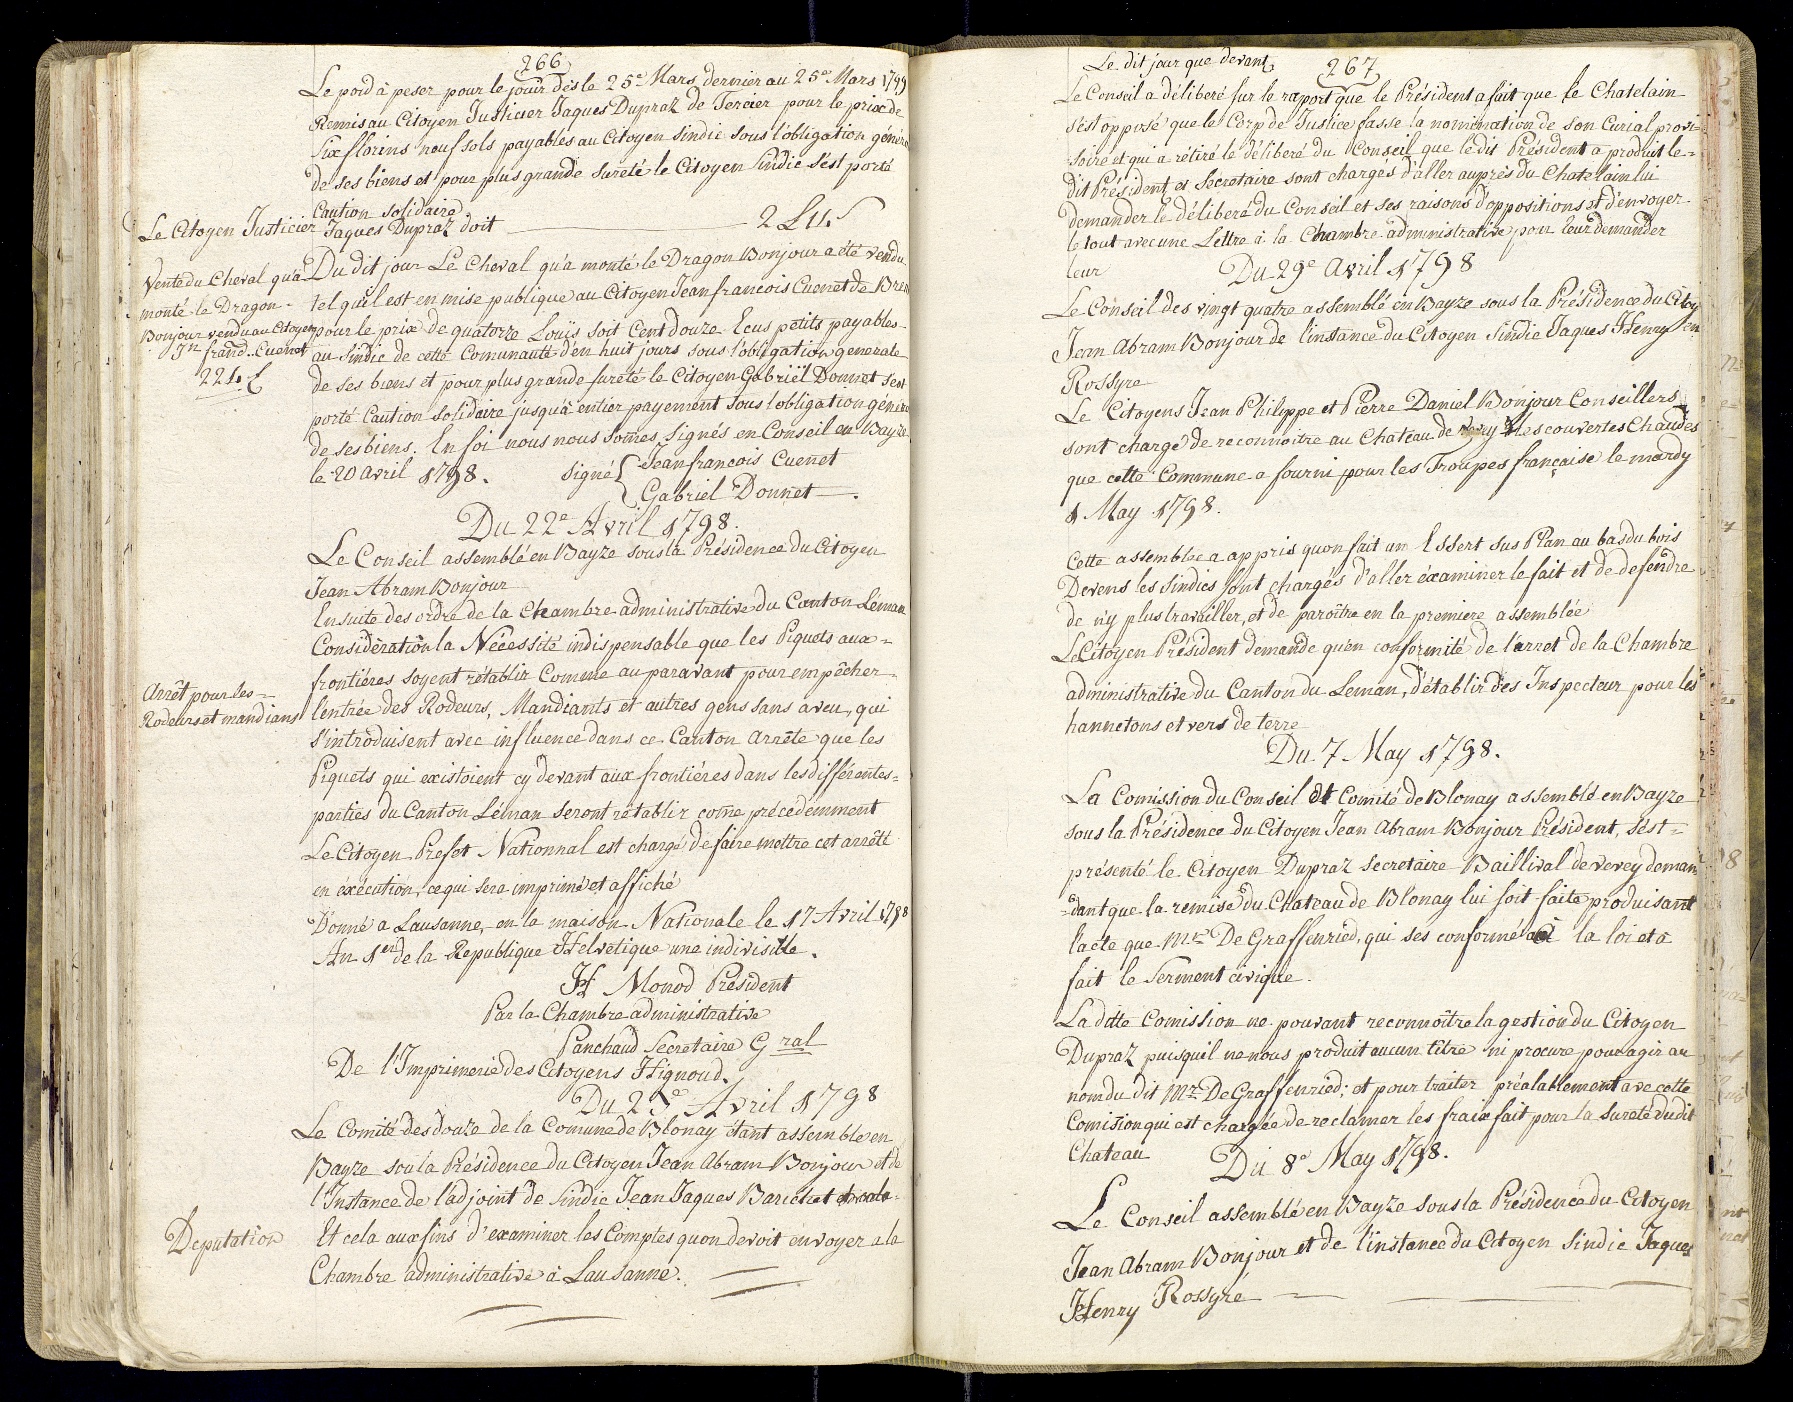 266
Le poid à peser pour le jouir dès le 25e Mars dernier au 25e Mars 1799
Remis au Citoyen Justicier Jaques Dupraz de Tercier pour le prix de
Six florins neuf sols payables au Citoyen Sindic sous l'obligation généra
de ses biens et pour plus grande sureté le Citoyen Sindic s'est porté
Caution solidaire
Le Citoyen Justicier Jaques Dupraz doit
Vente du Cheval qu'a
monté le Dragon
Bonjour vendu au Citoyen
Jn franc. Cuenet
224 £
Du dit jour Le Cheval qu'a monté le Dragon Bonjour a été vendu
tel qu'il est en mise publique au Citoyen Jean francois Cuenet de Bren
pour le prix de quatorze Louis soit Cent douze Ecus petits payables
au Sindic de cette Comunauté d'en huit jours sous l'obligation generale
de ses biens et pour plus grande sureté le Citoyen Gabriël Donnet s'est
porté Caution solidaire jusqu'à entier payement sous l'obligation généra
de ses biens. En foi nous nous somes signés en Conseil en Bayze
le 20 avril 1798. signé { Jean francois Cuenet
Gabriel Donnet.
Du 22e Avril 1798.
Le Conseil assemblé en Bayze sous la Présidence du Citoyen
Jean Abram Bonjour
Ensuite des ordre de la Chambre administrative du Canton Leman
Considération la Nécessité indispensable que les Piquets aux =
frontiéres soyent rétablir Comme au paravant pour empêcher
Arrêt pour les =
Rodeurs et mandians
l'entrée des Rodeurs, Mandiants et autres gens sans aveu, qui
s'introduisent avec influence dans ce Canton Arrête que les
Piquets qui existoient cy devant aux frontiéres dans les différentes =
parties du Canton Léman seront rétablir come précédemment
Le Citoyen Prefet Nationnal est chargé de faire mettre cet arrêté
en éxécution, ce qui sera imprimé et affiché
Donné a Lausanne, en la maison Nationale le 17 Avril 1798
An 1er de la Republique Helvetique une indivisible.
Hi Monod Président
Par la Chambre administrative
Panchaud Sécretaire Gral
De l'Imprimerie des Citoyens Hignoud.
Du 25e Avril 1798
Le Comité des douze de la Comune de Blonay étant assemble en
Bayze sou la Présidence du Citoyen Jean Abram Bonjour et de
l'Instance de l'adjoint de Sindic Jean Jaques Barichet
Deputation
Et cela aux fins d'examiner les Comptes quon devoit envoyer a la
Chambre administrative à Lausanne.
Le dit jour que devant, 267
Le Conseil a déliberé sur le raport que le Président a fait que le Chatelain
s'est opposé que le Corp de Justice fasse la nomination de son Curial provi=
soire et qui a rétiré le déliberé du Conseil que le dit Président a produit le=
dit Président et Secretaire sont chargés d'aller auprès du Chatelain lui
demander le déliberé du Conseil et ses raisons d'oppositions et d'envoyer
le tout avec une Lettre à la Chambre administrative pour leur demander
leur Du 29e Avril 1798
Le Conseil des vingt quatre assemblé en Bayze sous la Présidence du Citoy
Jean Abram Bonjour de l'instance du Citoyen Sindic Jaques Henry
Rossyre
Le Citoyens Jean Philippe et Pierre Daniel Bonjour Conseillers
sont chargé de reconnoitre au Chateau de Vevey les couvertes Chaudes
que cette Commune a fourni pour les Troupes française le mardy
1 May 1798.
Cette assemblée a appris quon fait un Essert sus Plan au bas du bois
Devens les Sindics sont chargés d'aller éxaminer le fait et de defendre
de n'y plus travailler, et de paroitre en la premiere assemblée
Le Citoyen Président demande qu'en conformité de l'arret de la Chambre
administrative du Canton du Leman, d'établir des Inspecteur pour les
hannetons et vers de terre
Du 7 May 1798.
La Comission du Conseil et Comité de Blonay assemblé en Bayze
sous la Présidence du Citoyen Jean Abram Bonjour Président, s'est =
présenté le Citoyen Dupraz secretaire Baillival de Vevey deman
= dant que la remise du Chateau de Blonay lui soit faite produisant
l'acte que Mr De Graffenried, qui ses conformé à la loi et a
fait le Serment civique.
La ditte Comission ne pouvant reconnoître la gestion du Citoyen
Dupraz puisquil ne nous produit aucun titre ni procure pour agir au
nom du dit Mr De Graffenried; et pour traiter préalablement avec cette
Comision qui est chargée de reclamer les fraix fait pour la sureté du dit
Chateau Du 8e May 1798.
Le Conseil assemblé en Bayze sous la Présidence du Citoyen
Jean Abram Bonjour et de l'instance du Citoyen Sindic Jaques
Henry Rossyre